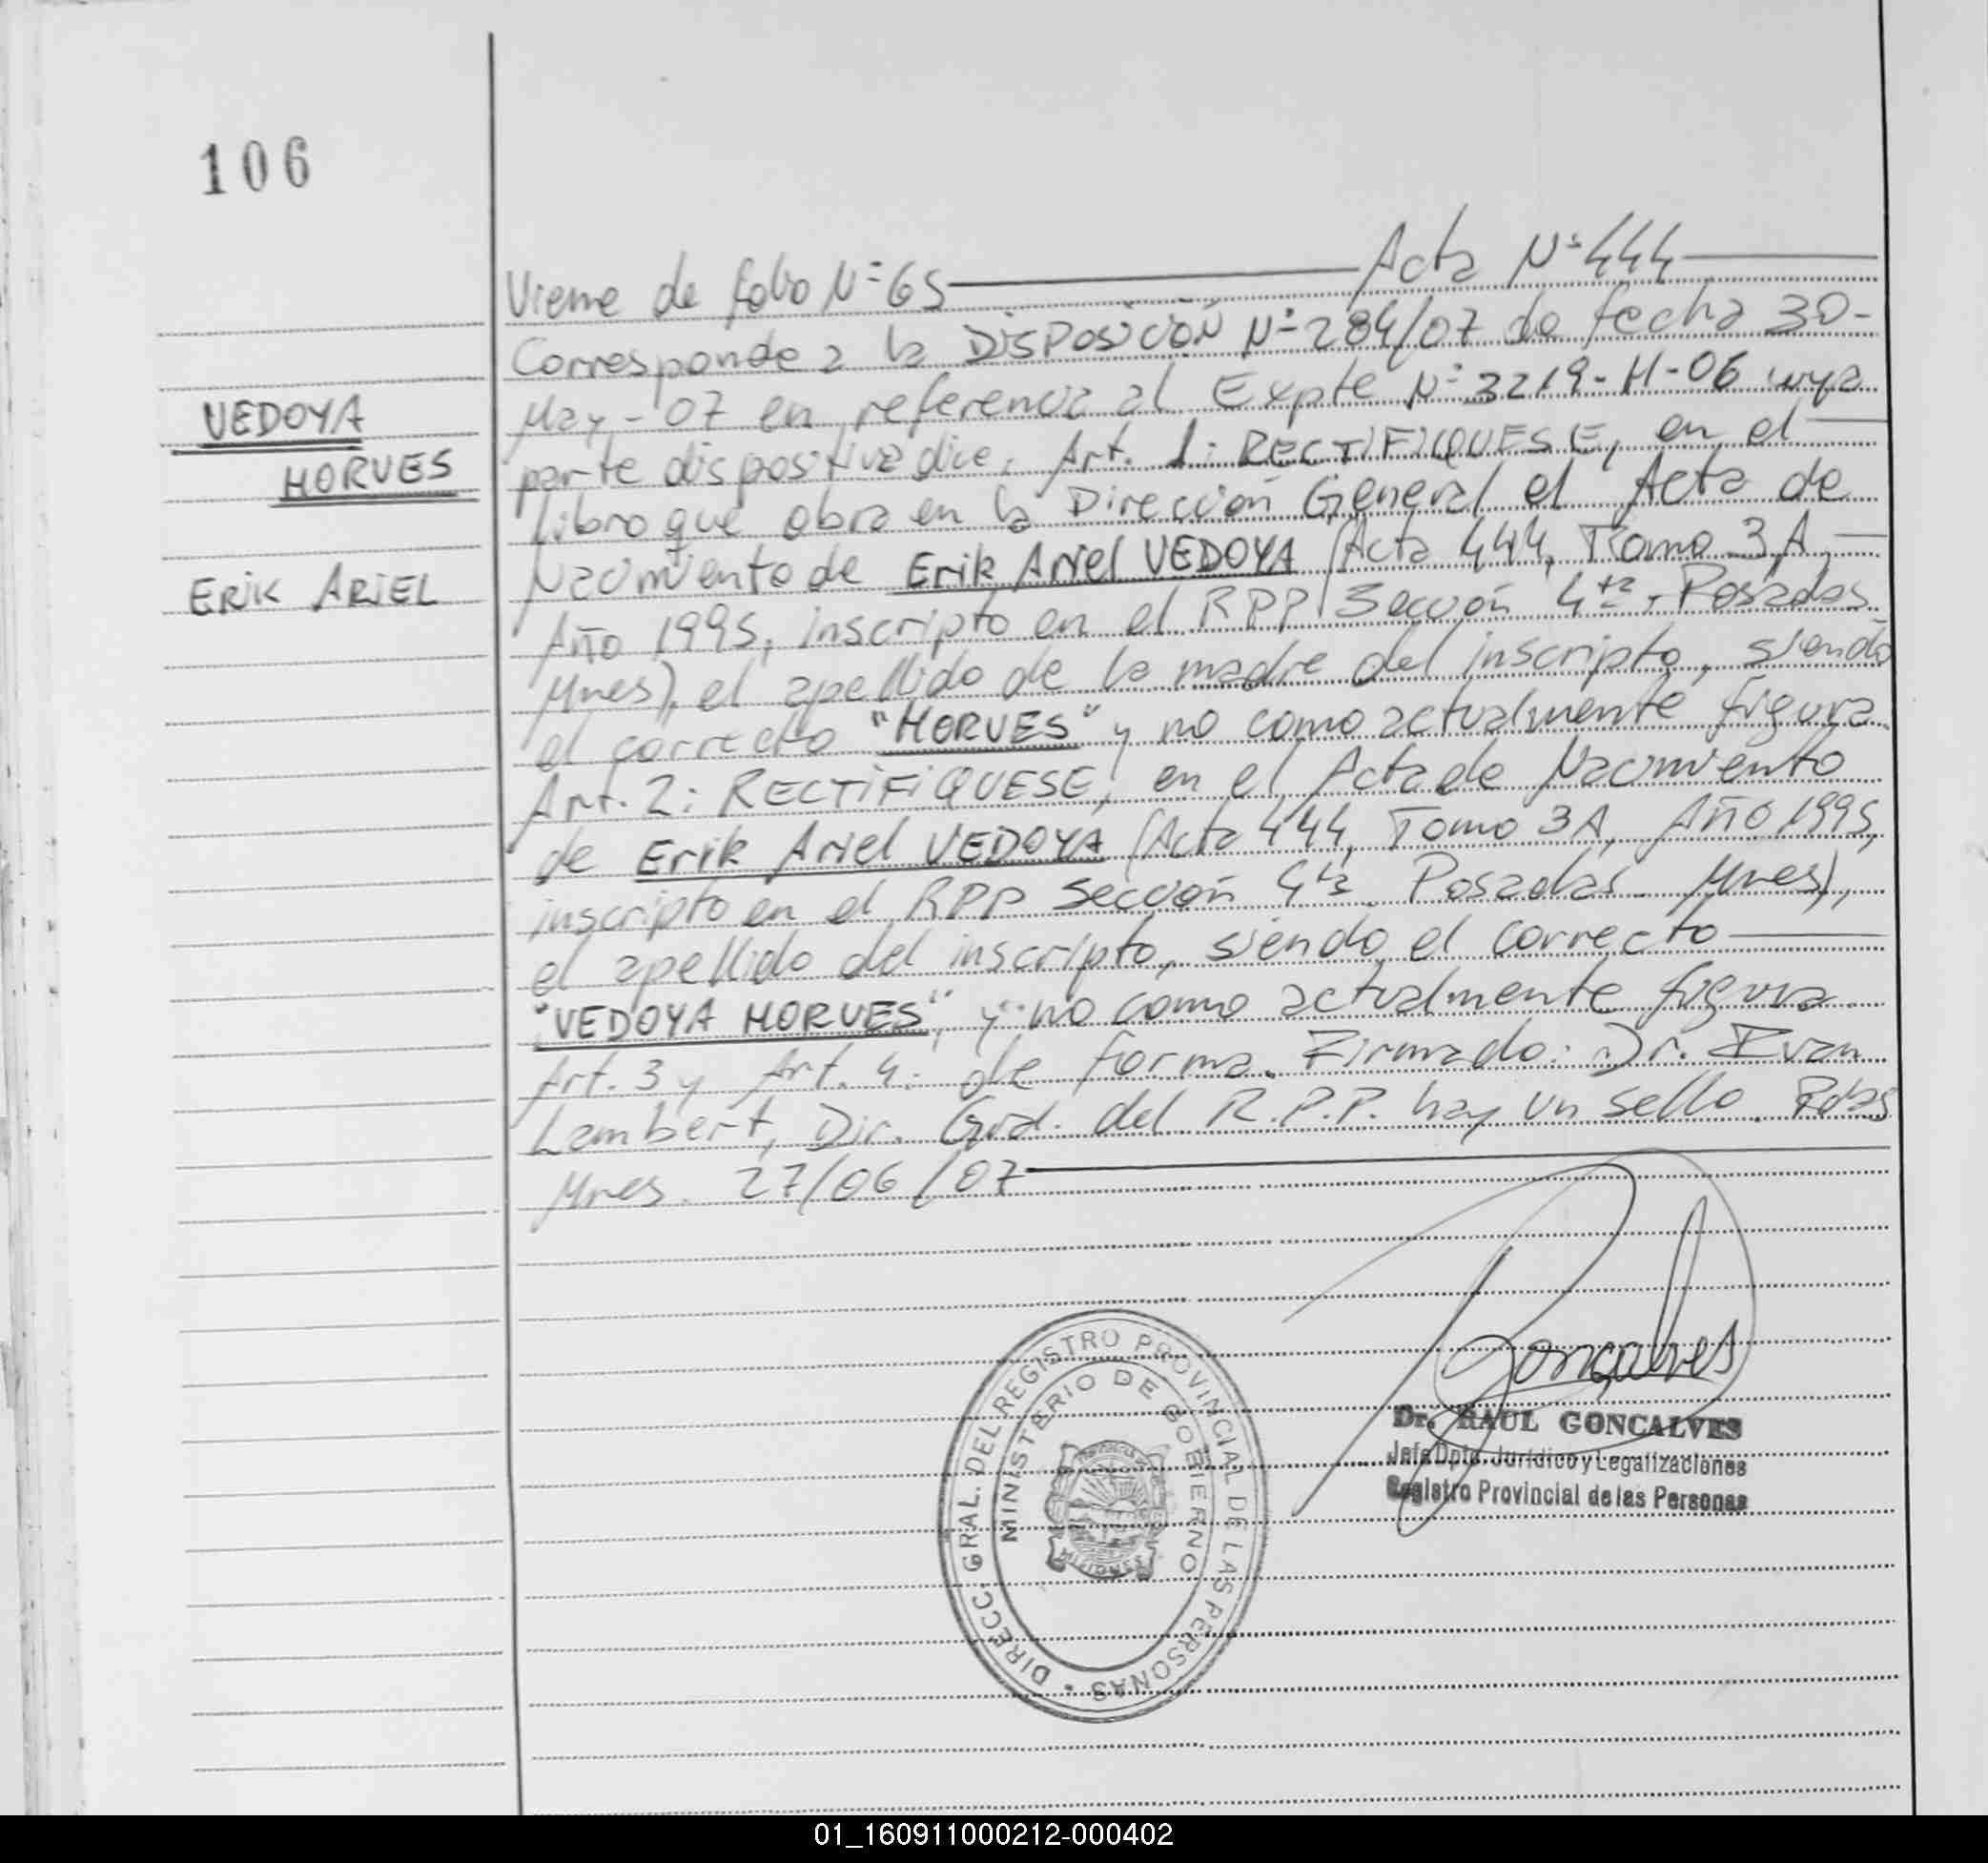 106
Viene de folio Nº 65 Acta Nº 444
Corresponde a la DISPOSICIÓN Nº 284/07 de fecha 30-
May-07 en referencia al Expte Nº 3219-H-06 cuya
VEDOYA
HORVES
ERIK ARIEL
parte dispositiva dice: Art. 1: RECTIFIQUESE, en el
Libro que obra en la Dirección General el Acta de
Nacimiento de Erik Ariel VEDOYA (Acta 444, Tomo 3A,
Año 1995, inscripto en el RPP Sección 4ta, Posadas
Mnes), el apellido de la madre del inscripto, siendo
el correcto "HORVES" y no como actualmente figura.
Art. 2: RECTIFIQUESE, en el Acta de Nacimiento
de Erik Ariel VEDOYA (Acta 444, Tomo 3A, Año 1995,
inscripto en el RPP Sección 4ta Posadas. Mnes),
el apellido del inscripto, siendo el correcto
"VEDOYA HORVES", y no como actualmente figura.
Art. 3 y Art. 4: de forma. Firmado: Dr. Ivan
Lambert, Dir. Gral. del R.P.P. hay un sello. Pdas
Mnes. 27/06/07
Gonçalves
Dr. RAUL GONCALVES
Jefe Dpto. Jurídico y Legalizaciones
Registro Provincial de las Personas
DIRECC. GRAL. DEL REGISTRO PROVINCIAL DE LAS PERSONAS
MINISTERIO DE GOBIERNO
MISIONES
01_160911000212-000402